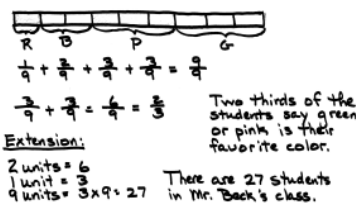 R B P G
1/9 + 2/9 + 3/9 + 3/9 = 9/9
3/9 + 3/9 = 6/9 = 2/3
Two thirds of the
students say green
or pink is their
favorite color.
Extension:
2 units = 6
1 unit = 3
9 units = 3x9 = 27
There are 27 students
in Mr. Beck's class.